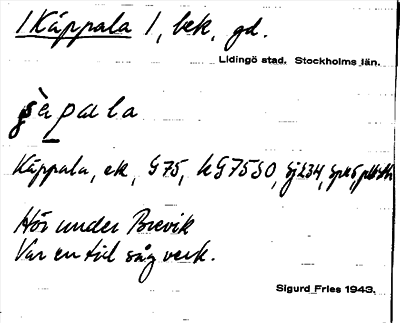 1 Käppala 1, bek, gd.
Lidingö stad. Stockholms län.
Käppala, ek, G 75, kG7550, Gj234,
Hör under Brevik
Var en tid sågverk.
Sigurd Fries 1943.